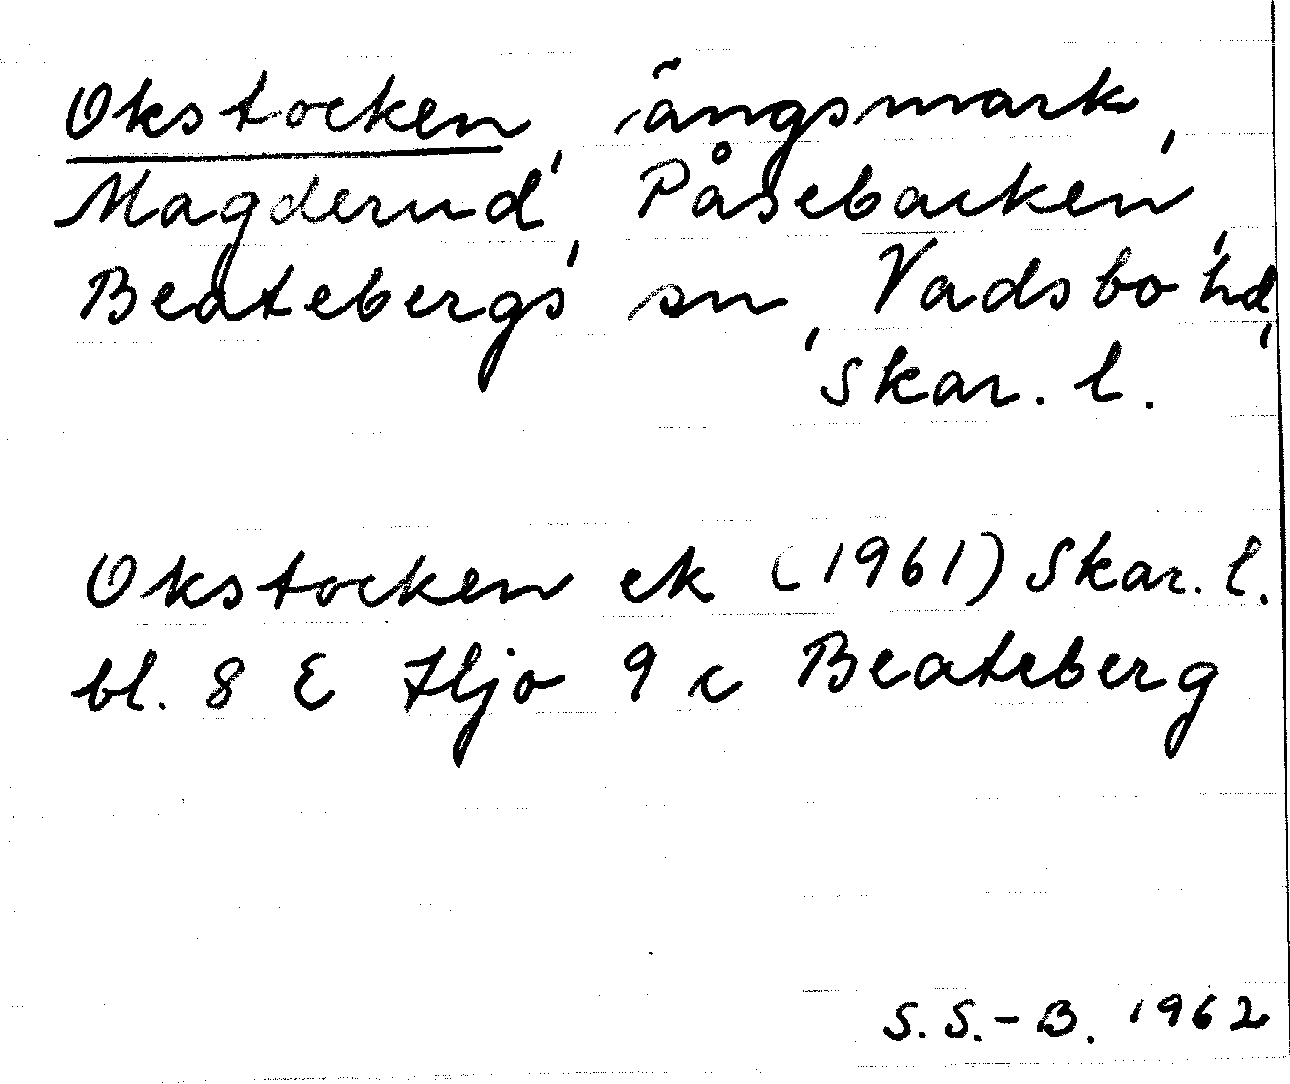 Okstocken, ängsmark,
Magderud, Påsebacken,
Beatebergs sn, Vadsbo hd,
Skar. l.
Okstocken ek (1961) Skar. l.
bl. 8 E Hjo 9 c Beateberg
S. S.-B. 1962